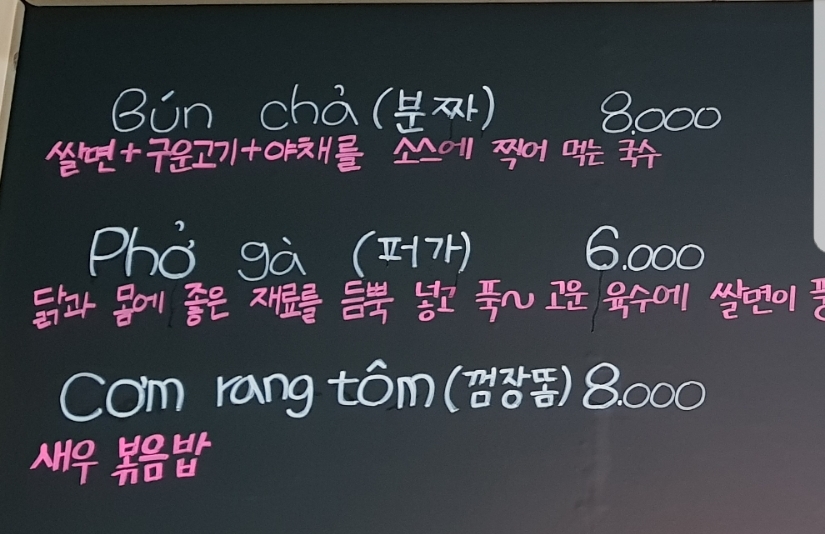 Bún chả (분짜) 8.000
쌀면+구운고기+야채를 소스에 찍어 먹는 국수
Phở gà (퍼가) 6.000
닭과 몸에 좋은 재료를 듬뿍 넣고 푹~ 고운 육수에 쌀면이
Cơm rang tôm (껌장똠) 8.000
새우 볶음밥